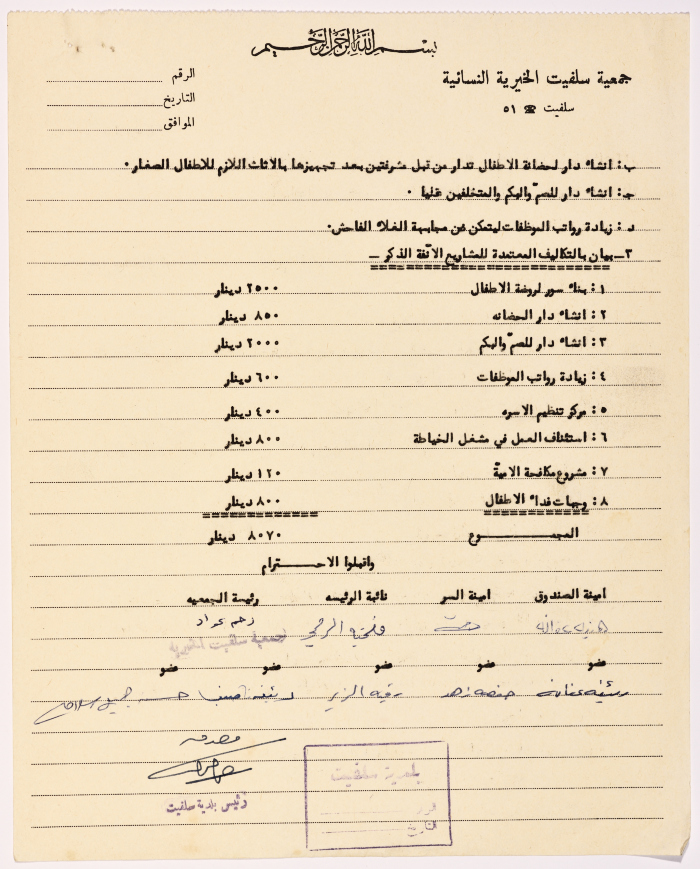 بسم الله الرحمن الرحيم
جمعية سلفيت الخيرية النسائية
سلفيت ☎ ٥١
الرقم
التاريخ
الموافق
ب: انشاء دار لحضانة الاطفال تدار من قبل مشرفتين بعد تجهيزها بالاثاث اللازم للاطفال الصغار.
جـ: انشاء دار للصمّ والبكم والمتخلفين عقليا .
د: زيادة رواتب الموظفات ليتمكن من مجابهة الغلاء الفاحش.
٣ـ بيان بالتكاليف المعتمدة للمشاريع الآنفة الذكر ــ
١: بناء سور لروضة الاطفال ٢٥٠٠ دينار
٢: انشاء دار الحضانه ٨٥٠ دينار
٣: انشاء دار للصمّ والبكم ٢٠٠٠ دينار
٤: زيادة رواتب الموظفات ٦٠٠ دينار
٥: مركز تنظيم الاسره ٤٠٠ دينار
٦: استئناف العمل في مشغل الخياطة ٨٠٠ دينار
٧: مشروع مكافحة الاميّة ١٢٠ دينار
٨: وجبات غداء الاطفال ٨٠٠ دينار
المجمــــــــوع ٨٠٧٠ دينار
واقبلوا الاحــــترام
امينة الصندوق امينة السر نائبة الرئيسه رئيسة الجمعيه
فتحيه عواد
جمعية سلفيت الخيرية
عضو عضو عضو عضو عضو
رقيه الزير
مصدقه
رئيس بلدية سلفيت
بلدية سلفيت
التاريخ